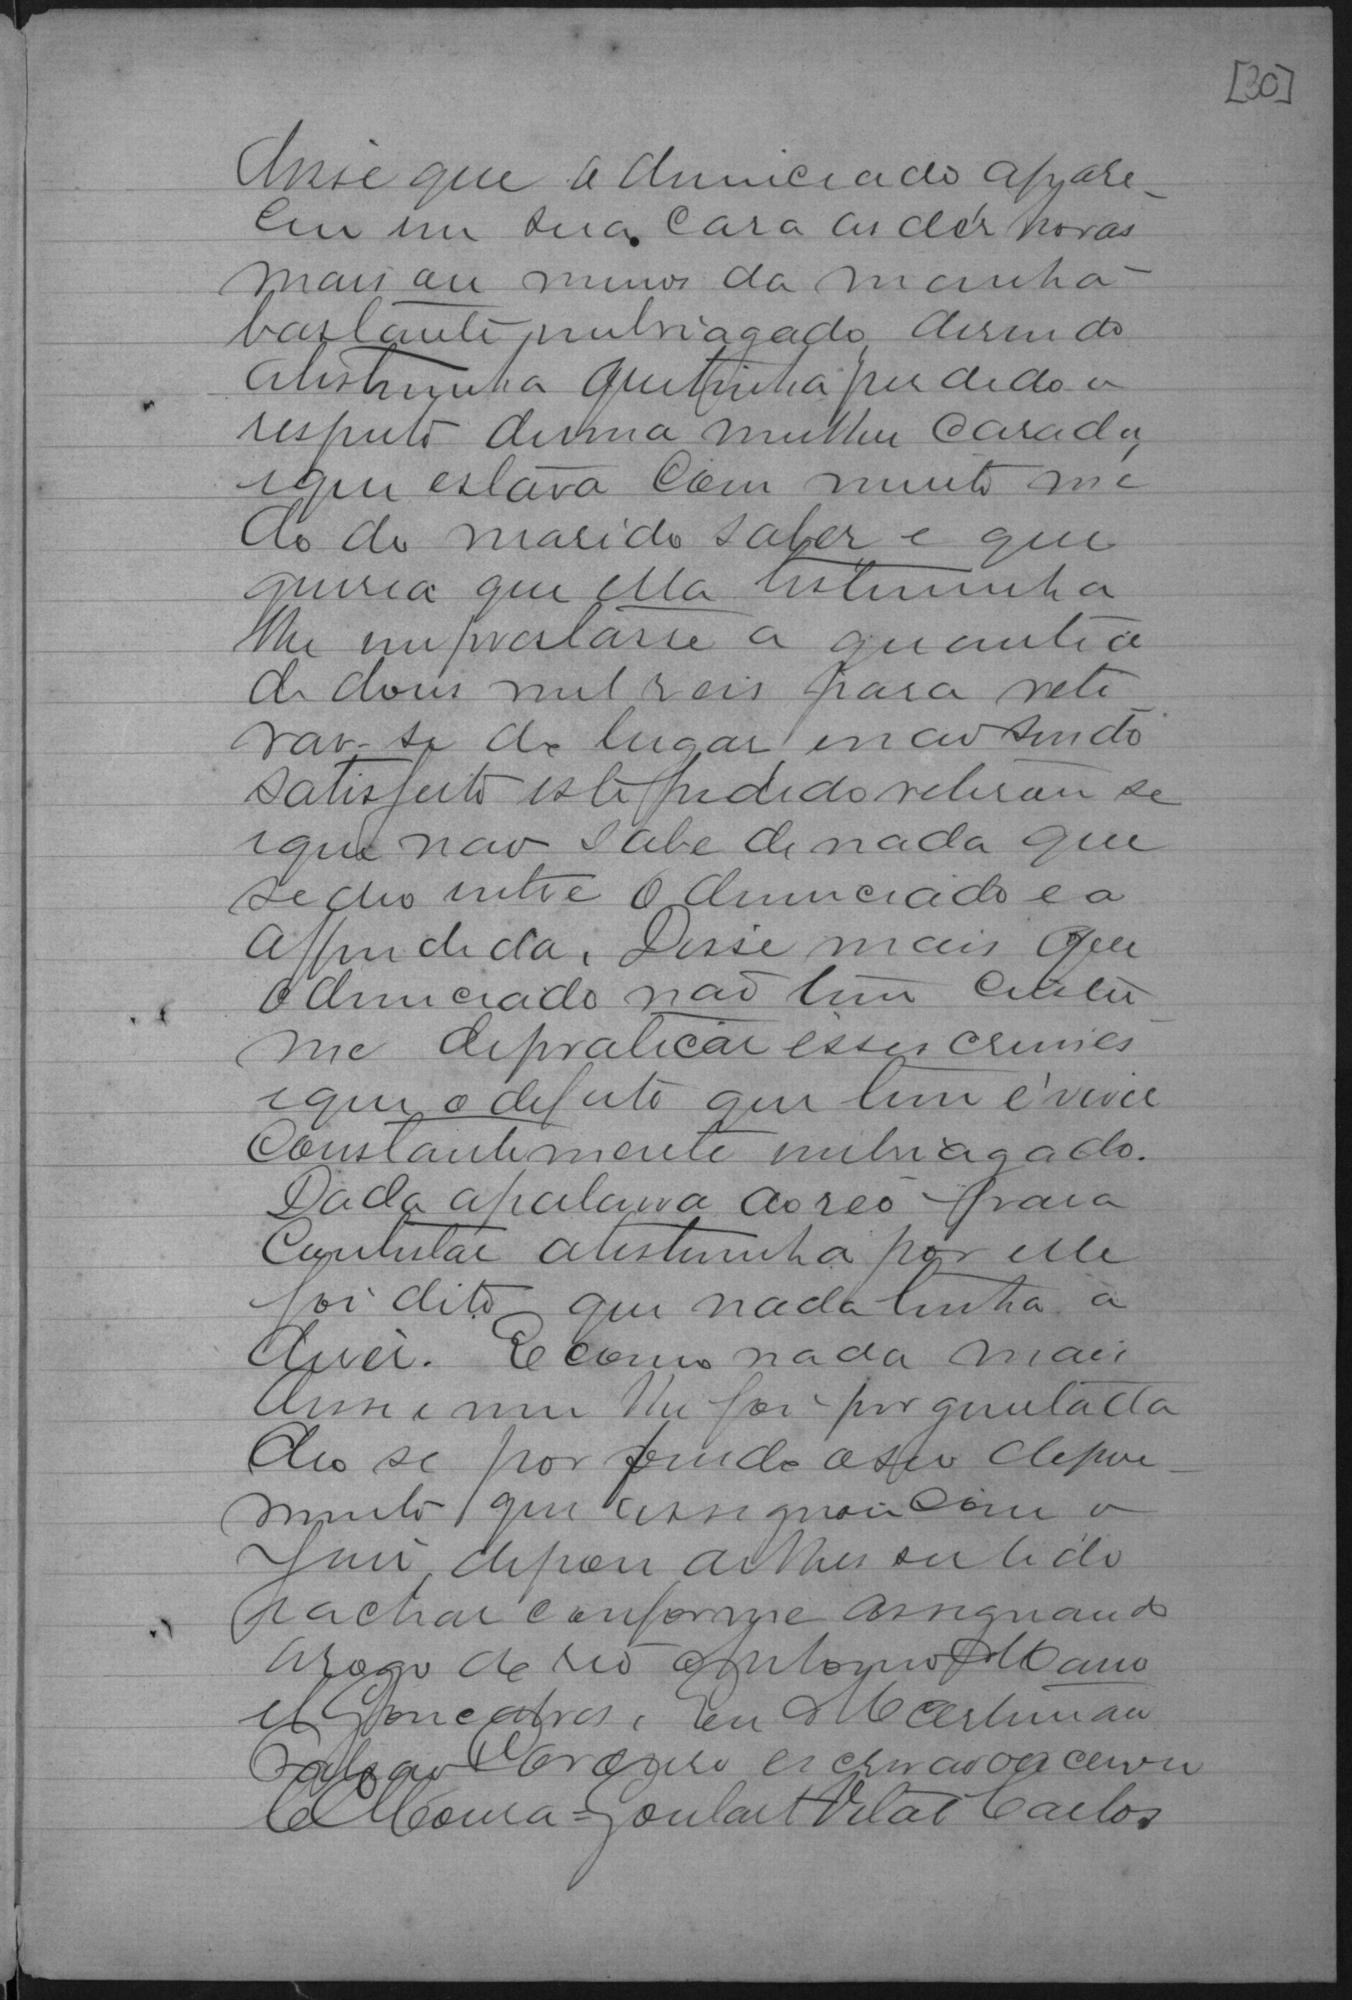 [30]
disse que o denunciado appare-
ceu em sua casa as déz horas
mais ou menos da manhã
bastante embriagado, disendo
a testemunha que tinha perdido o
respeito duma mulher casada,
e que estava com muito me
do do marido saber e que
queria que ella testemunha
lhe emprestasse a quantia
de dous mil reis para reti
rar-se do lugar, e não sendo
satisfeito este pedido retirou se
e que não sabe de nada que
se deo entre o denunciado e a
offendida. Disse mais que
o denunciado não tem custu
me de praticar esses crimes
e que o defeito que tem é viver
constantemente embriagado.
Dada a palavra ao réo para
contestar a testemunha por elle
foi dito que nada tinha a
diser. E como nada mais
disse e nem lhe foi perguntado
deo se por findo o seu depoi-
mento que assignou com o
Juiz, depois de lhes ser lido
e achar conforme assignando
a rogo do réo Antonio Mano
el Gonçalves. Eu Martiniano
escrivão o escrevi
Moura = Goulart Vital Carlos